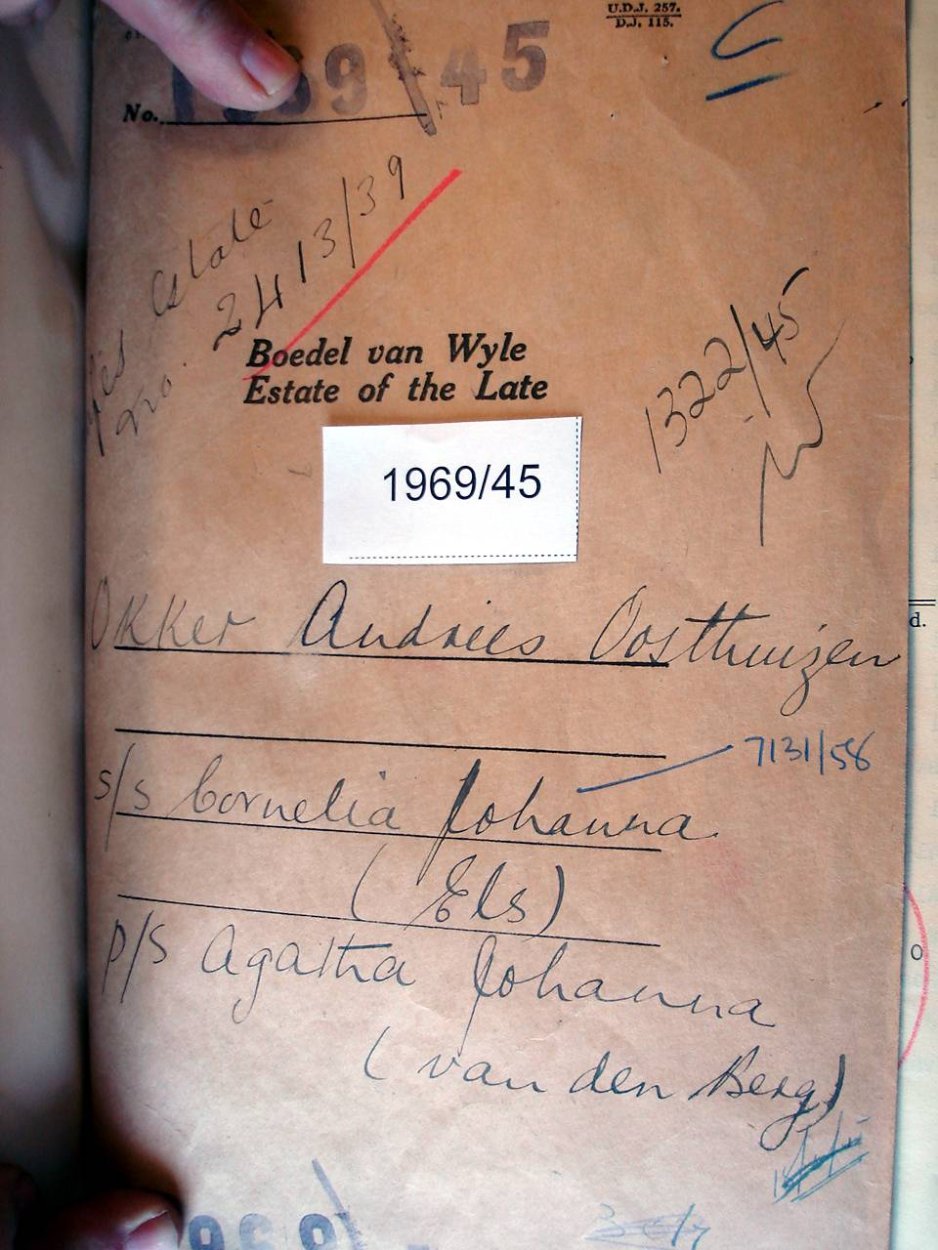 U.D.J. 257.
D.J. 115.
C
No. 1969/45
Estate
No. 2413/39
Boedel van Wyle
Estate of the Late
1322/45
1969/45
Okker Andries Oosthuizen
7131/58
s/s Cornelia Johanna
(Els)
p/s Agatha Johanna
(van den Berg)
d.
o